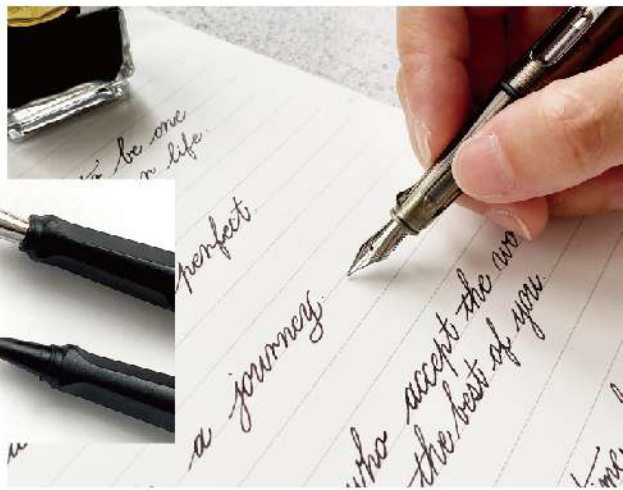 be one
life.
perfect.
a journey.
who accept the
the best of you.